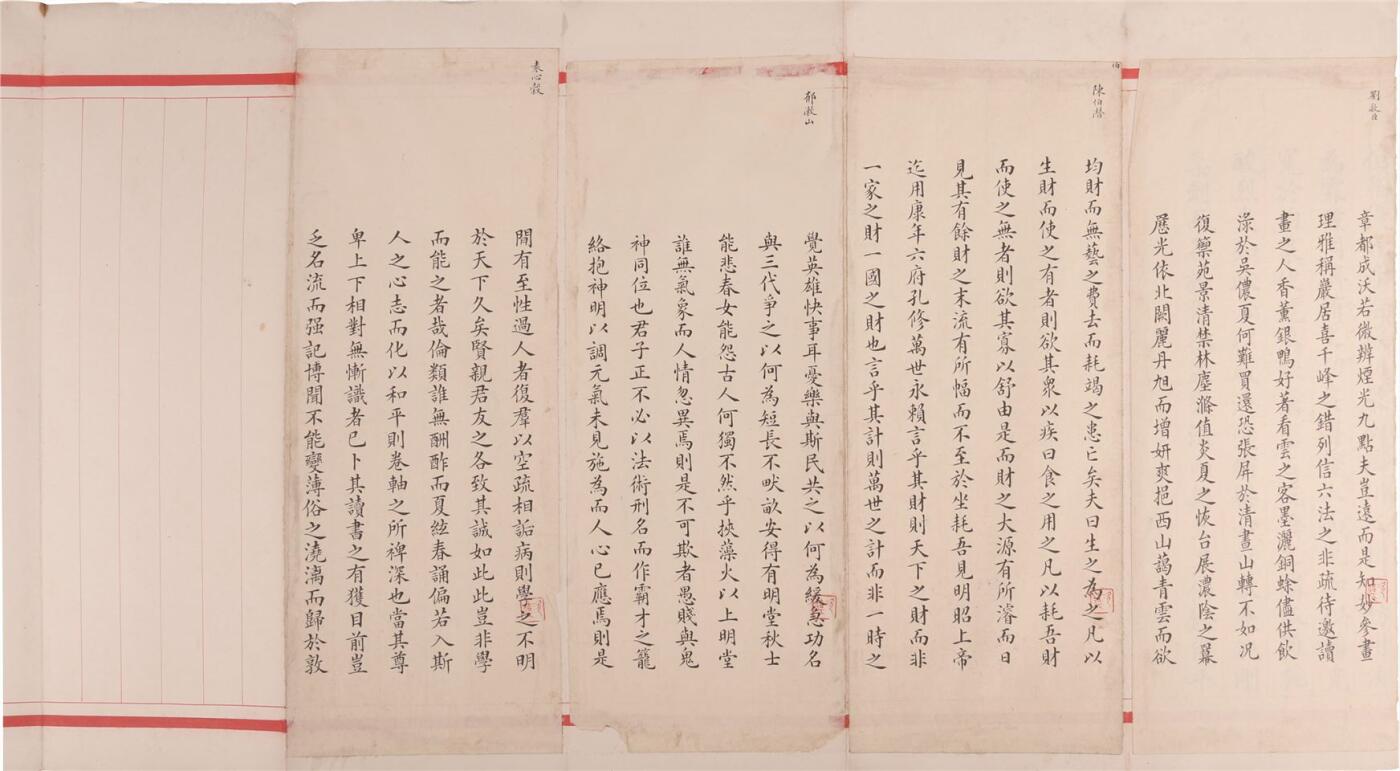 劉
章都成沃若微辨煙光九點夫豈遠而是知妙參畫
理雅稱巖居喜千峰之錯列信六法之非疏待邀讀
畫之人香薰銀鴨好著看雲之客墨灑銅蜍儘供飲
淥於吳儂夏何難買還恐張屏於清晝山轉不如況
復藥苑景清禁林塵滌值炎夏之恢台展濃陰之羃
歷光依北闕麗丹旭而增妍爽挹西山藹青雲而欲
陳伯潛
伯
均財而無藝之費去而耗竭之患亡矣夫曰生之為之凡以
生財而使之有者則欲其衆以疾曰食之用之凡以耗吾財
而使之無者則欲其寡以舒由是而財之大源有所濬而日
見其有餘財之末流有所幅而不至於坐耗吾見明昭上帝
迄用康年六府孔修萬世永賴言乎其財則天下之財而非
一家之財一國之財也言乎其計則萬世之計而非一時之
郁漱山
覺英雄快事耳憂樂與斯民共之以何為緩急功名
與三代爭之以何為短長不畎畝安得有明堂秋士
能悲春女能怨古人何獨不然乎挾藻火以上明堂
誰無氣象而人情忽異焉則是不可欺者愚賤與鬼
神同位也君子正不必以法術刑名而作霸才之籠
絡抱神明以調元氣未見施為而人心已應焉則是
秦心
間有至性過人者復羣以空疏相詬病則學之不明
於天下久矣賢親君友之各致其誠如此此豈非學
而能之者哉倫類誰無酬酢而夏絃春誦偏若入斯
人之心志而化以和平則卷軸之所裨深也當其尊
卑上下相對無慚識者已卜其讀書之有獲目前豈
乏名流而强記博聞不能變薄俗之澆漓而歸於敦